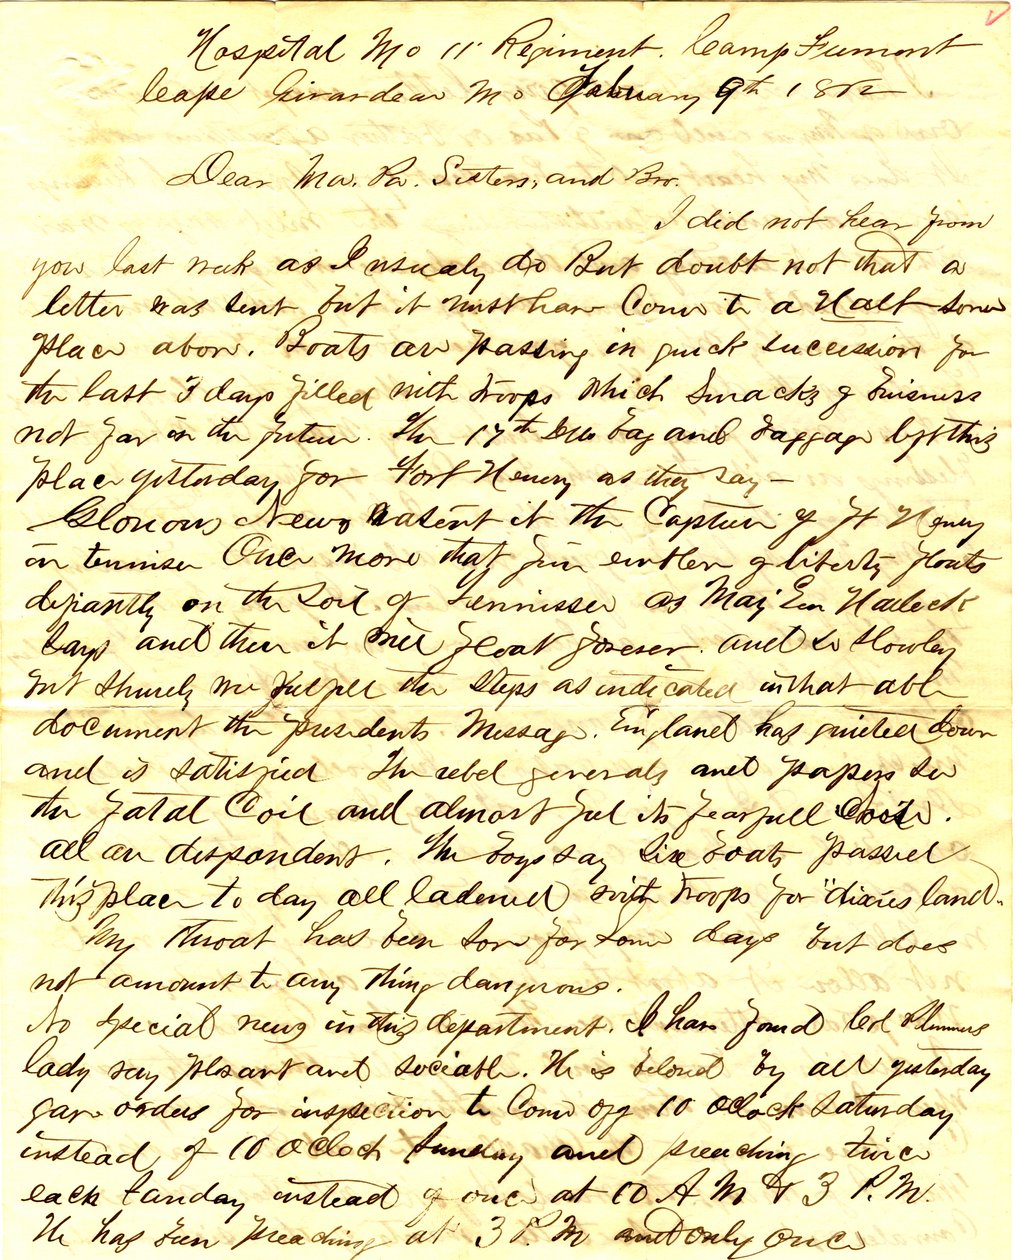 Hospital Mo 11" Regiment. Camp Fremont
Cape Girardeau Mo February 9th 1862
Dear Ma. Pa. Sisters, and Bro.
I did not hear from
you last week as I usualy do But doubt not that a
letter was sent but it must have Come to a Halt some
place above. Boats are passing in quick succession for
the last 3 days filled with troops which Smacks of buisness
not far in the future. The 17th Ills bag and baggage left this
place yesterday for Fort Henry as they say –
Glorious News wasent it the Capture of Ft Henry
in tennisee Once more that emblem of liberty floats
defiantly on the Soil of Tennissee as Maj Gen Halleck
Says and there it will float forever. and so slowley
but shurely we fulfill the steps as indicated in that able
document the presidents Message. England has quieted down
and is satisfied The rebel generals and papers see
the fatal Coil and almost feel its fearfull Close.
all are despondent. The boys say Six boats passed
this place to day all ladened with troops for "dixies land"
My throat has been sore for some days but does
not amount to any thing dangerous.
No special news in this department. I have found Col Plummers
lady very plesant and sociable. He is beloved by all yesterday
gave orders for inspection to Come off 10 oclock Saturday
instead of 10 oClock Sunday and preaching twice
each Sunday instead of once at 10 A M & 3 P.M.
He has been preaching at 3 P.M and only once